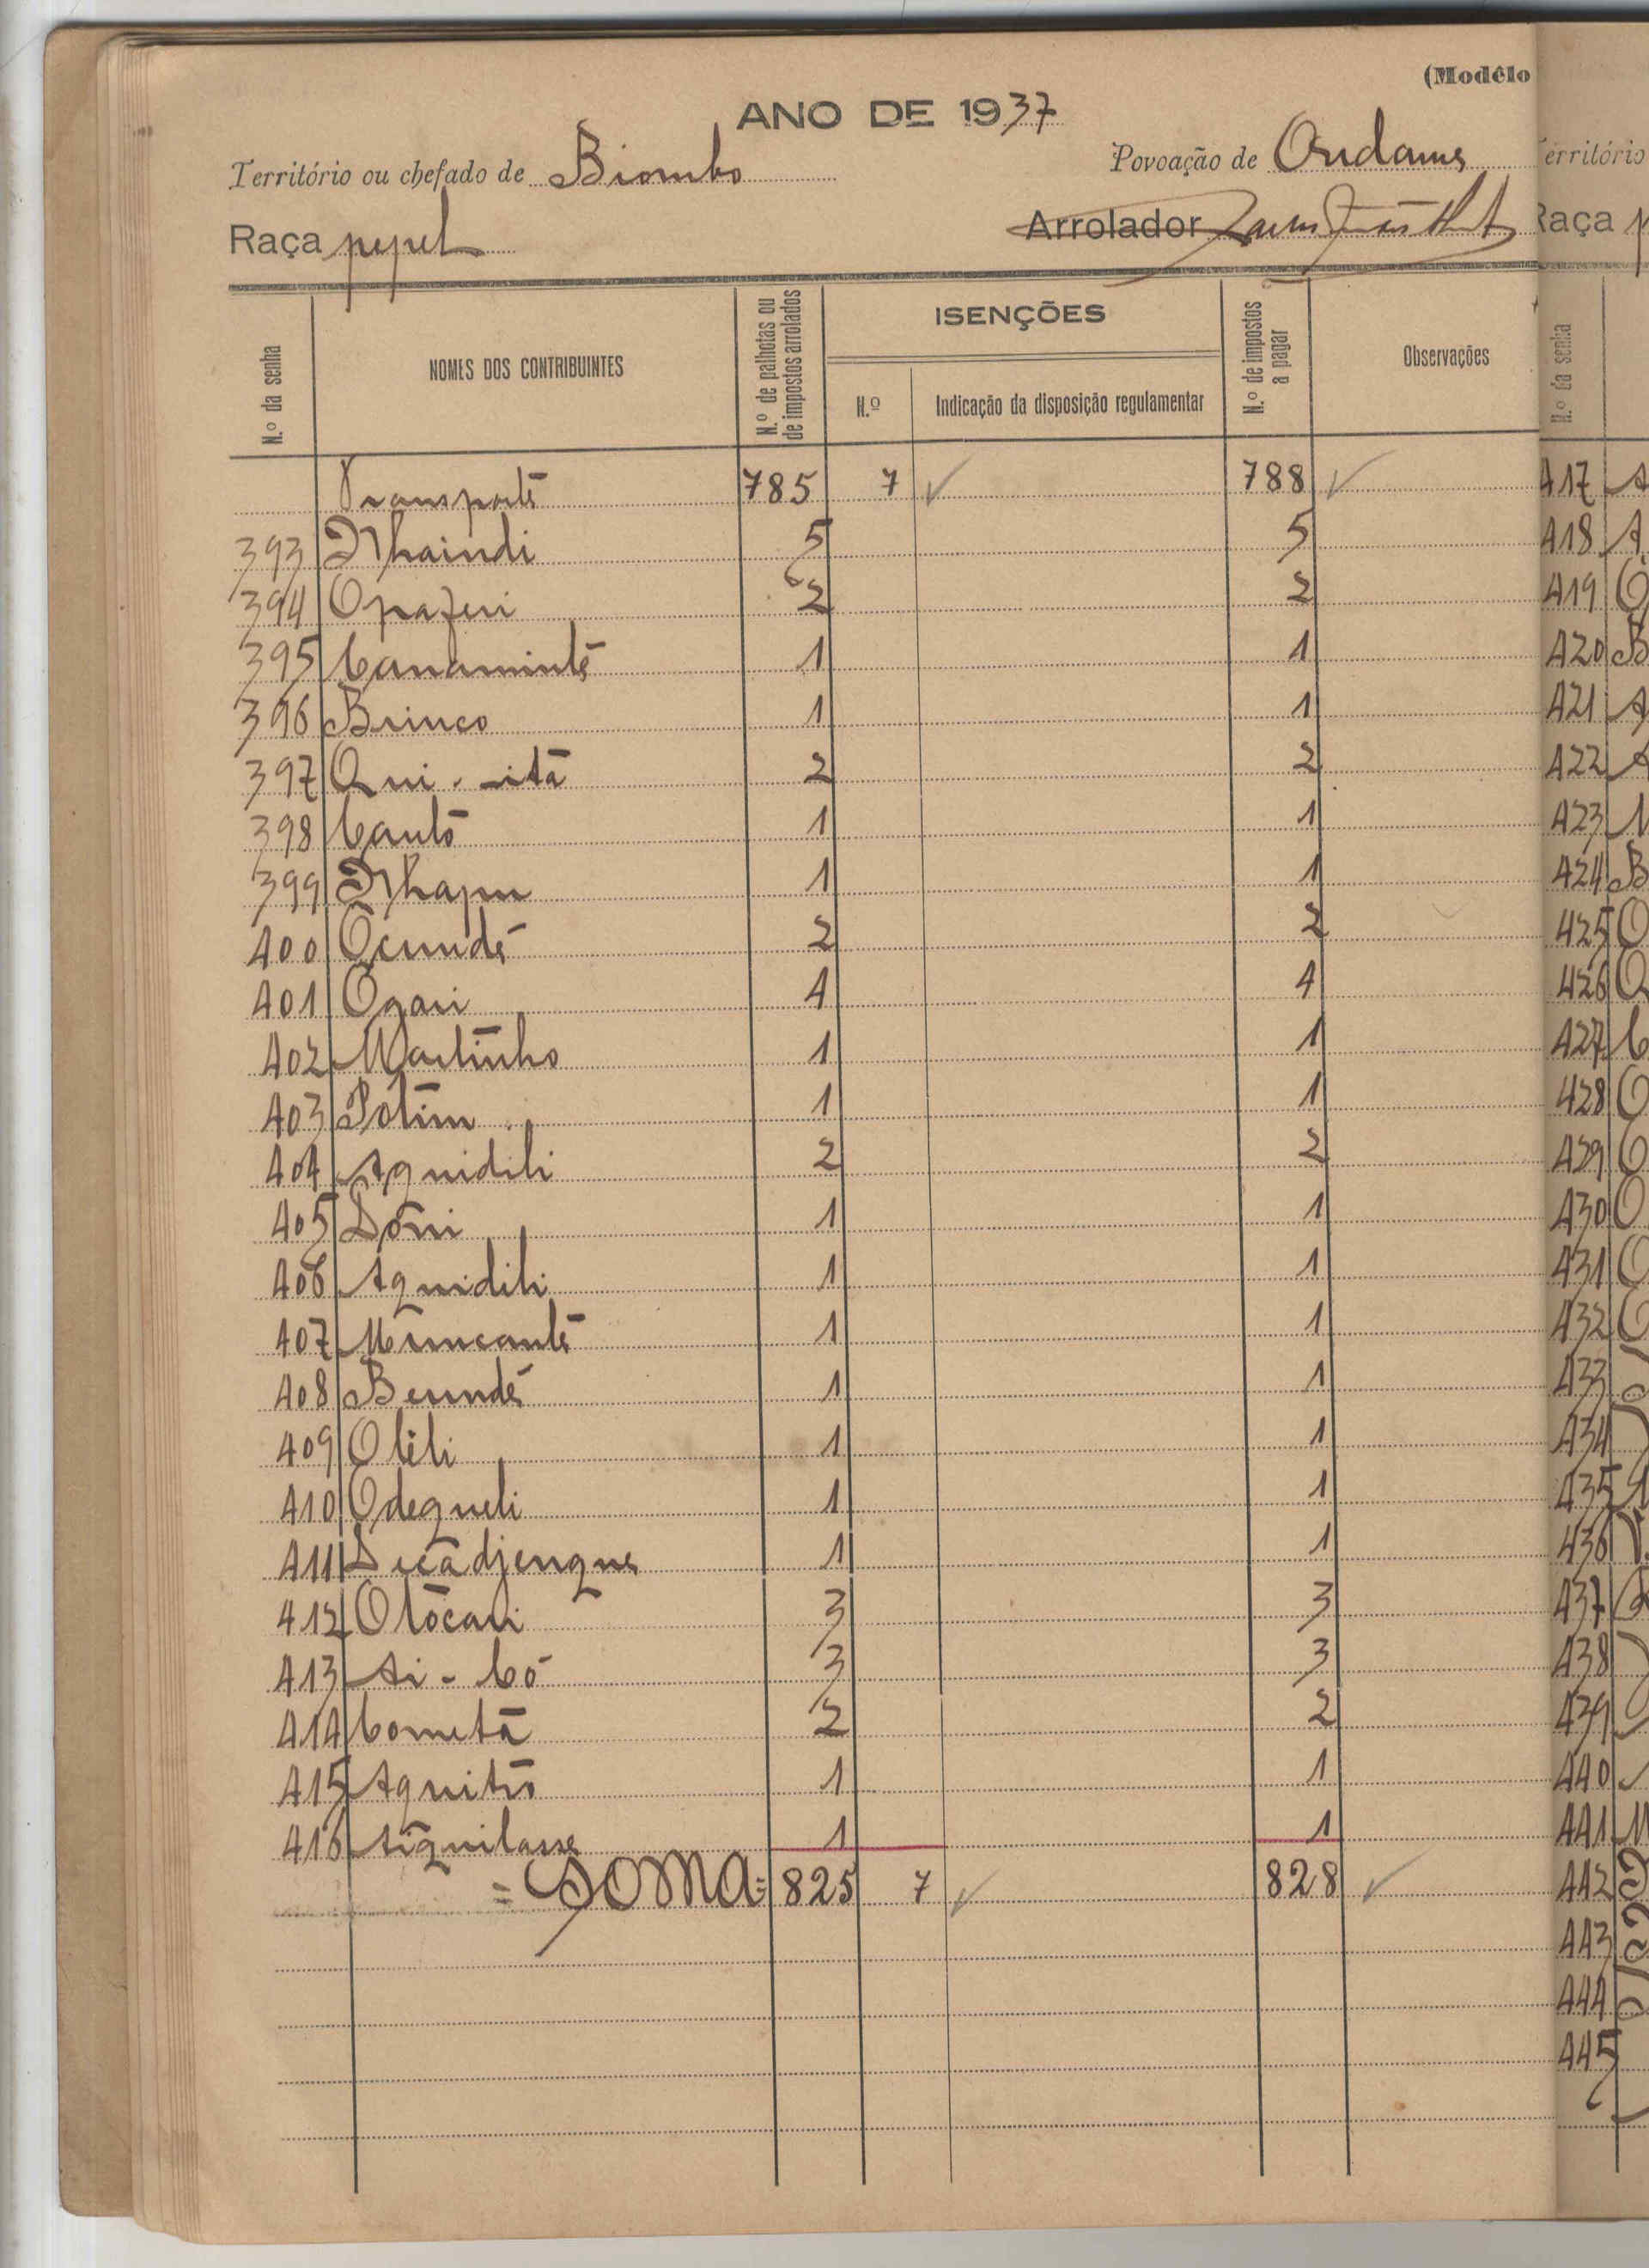 (Modêlo
ANO DE 1937
Território ou chefado de Biombo
Povoação de Ondame
Raça pepel
Arrolador
N.º da senha
NOMES DOS CONTRIBUINTES
N.º de palhotas ou de impostos arrolados
ISENÇÕES
N.º
Indicação da disposição regulamentar
N.º de impostos a pagar
Observações
Transporte 785 7 788
393 Nhaindi 5 5
394 2 2
395 Canamintê 1 1
396 Brinco 1 1
397 Qui - itã 2 2
398 Cantô 1 1
399 1 1
400 Ocundé 2 2
401 Ogari 4 4
402 Martinho 1 1
403 Potim 1 1
404 Aquidili 2 2
405 Dóni 1 1
406 Aquidili 1 1
407 1 1
408 1 1
409 Olili 1 1
410 Odequeli 1 1
411 1 1
412 Otócari 3 3
413 Ai - có 3 3
414 Cometã 2 2
415 Aquitó 1 1
416 1 1
= SOMA = 825 7 828
Território
Raça
N.º da senha
417
418
419
420
421
422
423
424
425
426
427
428
429
430
431
432
433
434
435
436
437
438
439
440
441
442
443
444
445